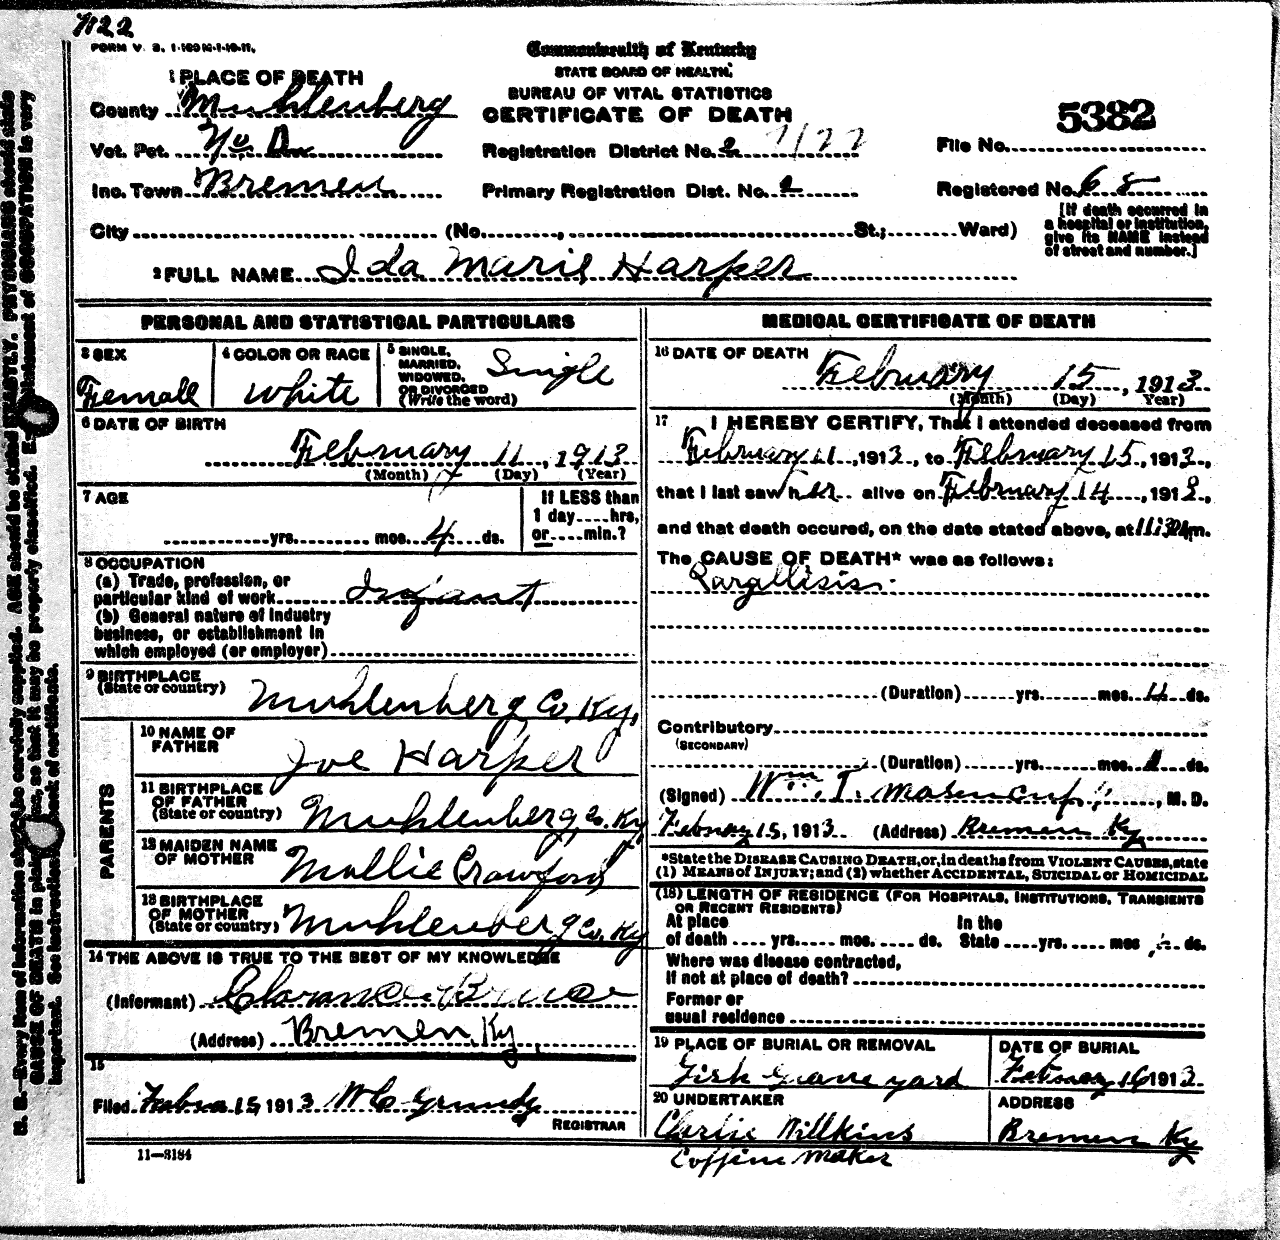 7122
FORM V. S. 1-150M-1-19-11.
Commonwealth of Kentucky
STATE BOARD OF HEALTH,
BUREAU OF VITAL STATISTICS
CERTIFICATE OF DEATH
1 PLACE OF DEATH
County Muhlenberg
Vot. Pct.
Inc. Town Bremen
City (No. , St.; Ward)
Registration District No. 2 7122
Primary Registration Dist. No. 2
5382
File No.
Registered No. 68
[If death occurred in
a hospital or institution,
give its NAME instead
of street and number.]
2 FULL NAME Ida Marie Harper
PERSONAL AND STATISTICAL PARTICULARS
3 SEX
Female
4 COLOR OR RACE
White
5 SINGLE,
MARRIED,
WIDOWED,
OR DIVORCED
(Write the word)
Single
6 DATE OF BIRTH
February 11, 1913
(Month) (Day) (Year)
7 AGE
yrs. mos. 4 ds.
If LESS than
1 day....hrs,
or....min.?
8 OCCUPATION
(a) Trade, profession, or
particular kind of work Infant
(b) General nature of industry
business, or establishment in
which employed (or employer)
9 BIRTHPLACE
(State or country)
Muhlenberg Co. Ky.
PARENTS
10 NAME OF
FATHER
Joe Harper
11 BIRTHPLACE
OF FATHER
(State or country)
Muhlenberg Co. Ky
12 MAIDEN NAME
OF MOTHER
Mollie Crawford
13 BIRTHPLACE
OF MOTHER
(State or country)
Muhlenberg Co. Ky
14 THE ABOVE IS TRUE TO THE BEST OF MY KNOWLEDGE
(Informant)
(Address) Bremen, Ky
15
Filed 15, 1913 W C Grundy
REGISTRAR
11—3184
MEDICAL CERTIFICATE OF DEATH
16 DATE OF DEATH
February 15, 1913
(Month) (Day) Year)
17 I HEREBY CERTIFY, That I attended deceased from
February 11, 1913, to February 15, 1913,
that I last saw her alive on February 14, 1913,
and that death occured, on the date stated above, at 11:30 m.
The CAUSE OF DEATH* was as follows:
Pargllisis
(Duration) yrs. mos. 4 ds.
Contributory
(SECONDARY)
(Duration) yrs. mos. ds.
(Signed) Wm. T. Mosencup, M. D.
15, 1913 (Address) Bremen Ky
*State the DISEASE CAUSING DEATH, or, in deaths from VIOLENT CAUSES, state
(1) MEANS of INJURY; and (2) whether ACCIDENTAL, SUICIDAL or HOMICIDAL
(18) LENGTH OF RESIDENCE (FOR HOSPITALS, INSTITUTIONS, TRANSIENTS
OR RECENT RESIDENTS)
At place In the
of death .... yrs. .... mos. .... ds. State .... yrs. mos ds.
Where was disease contracted,
If not at place of death?
Former or
usual residence
19 PLACE OF BURIAL OR REMOVAL
Fish Grave yard
DATE OF BURIAL
February 16 1913
20 UNDERTAKER
Charlie Willkins
Coffine Maker
ADDRESS
Bremen Ky